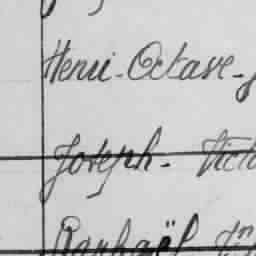 Henri-Octave-
Joseph- Vict
Raphaël